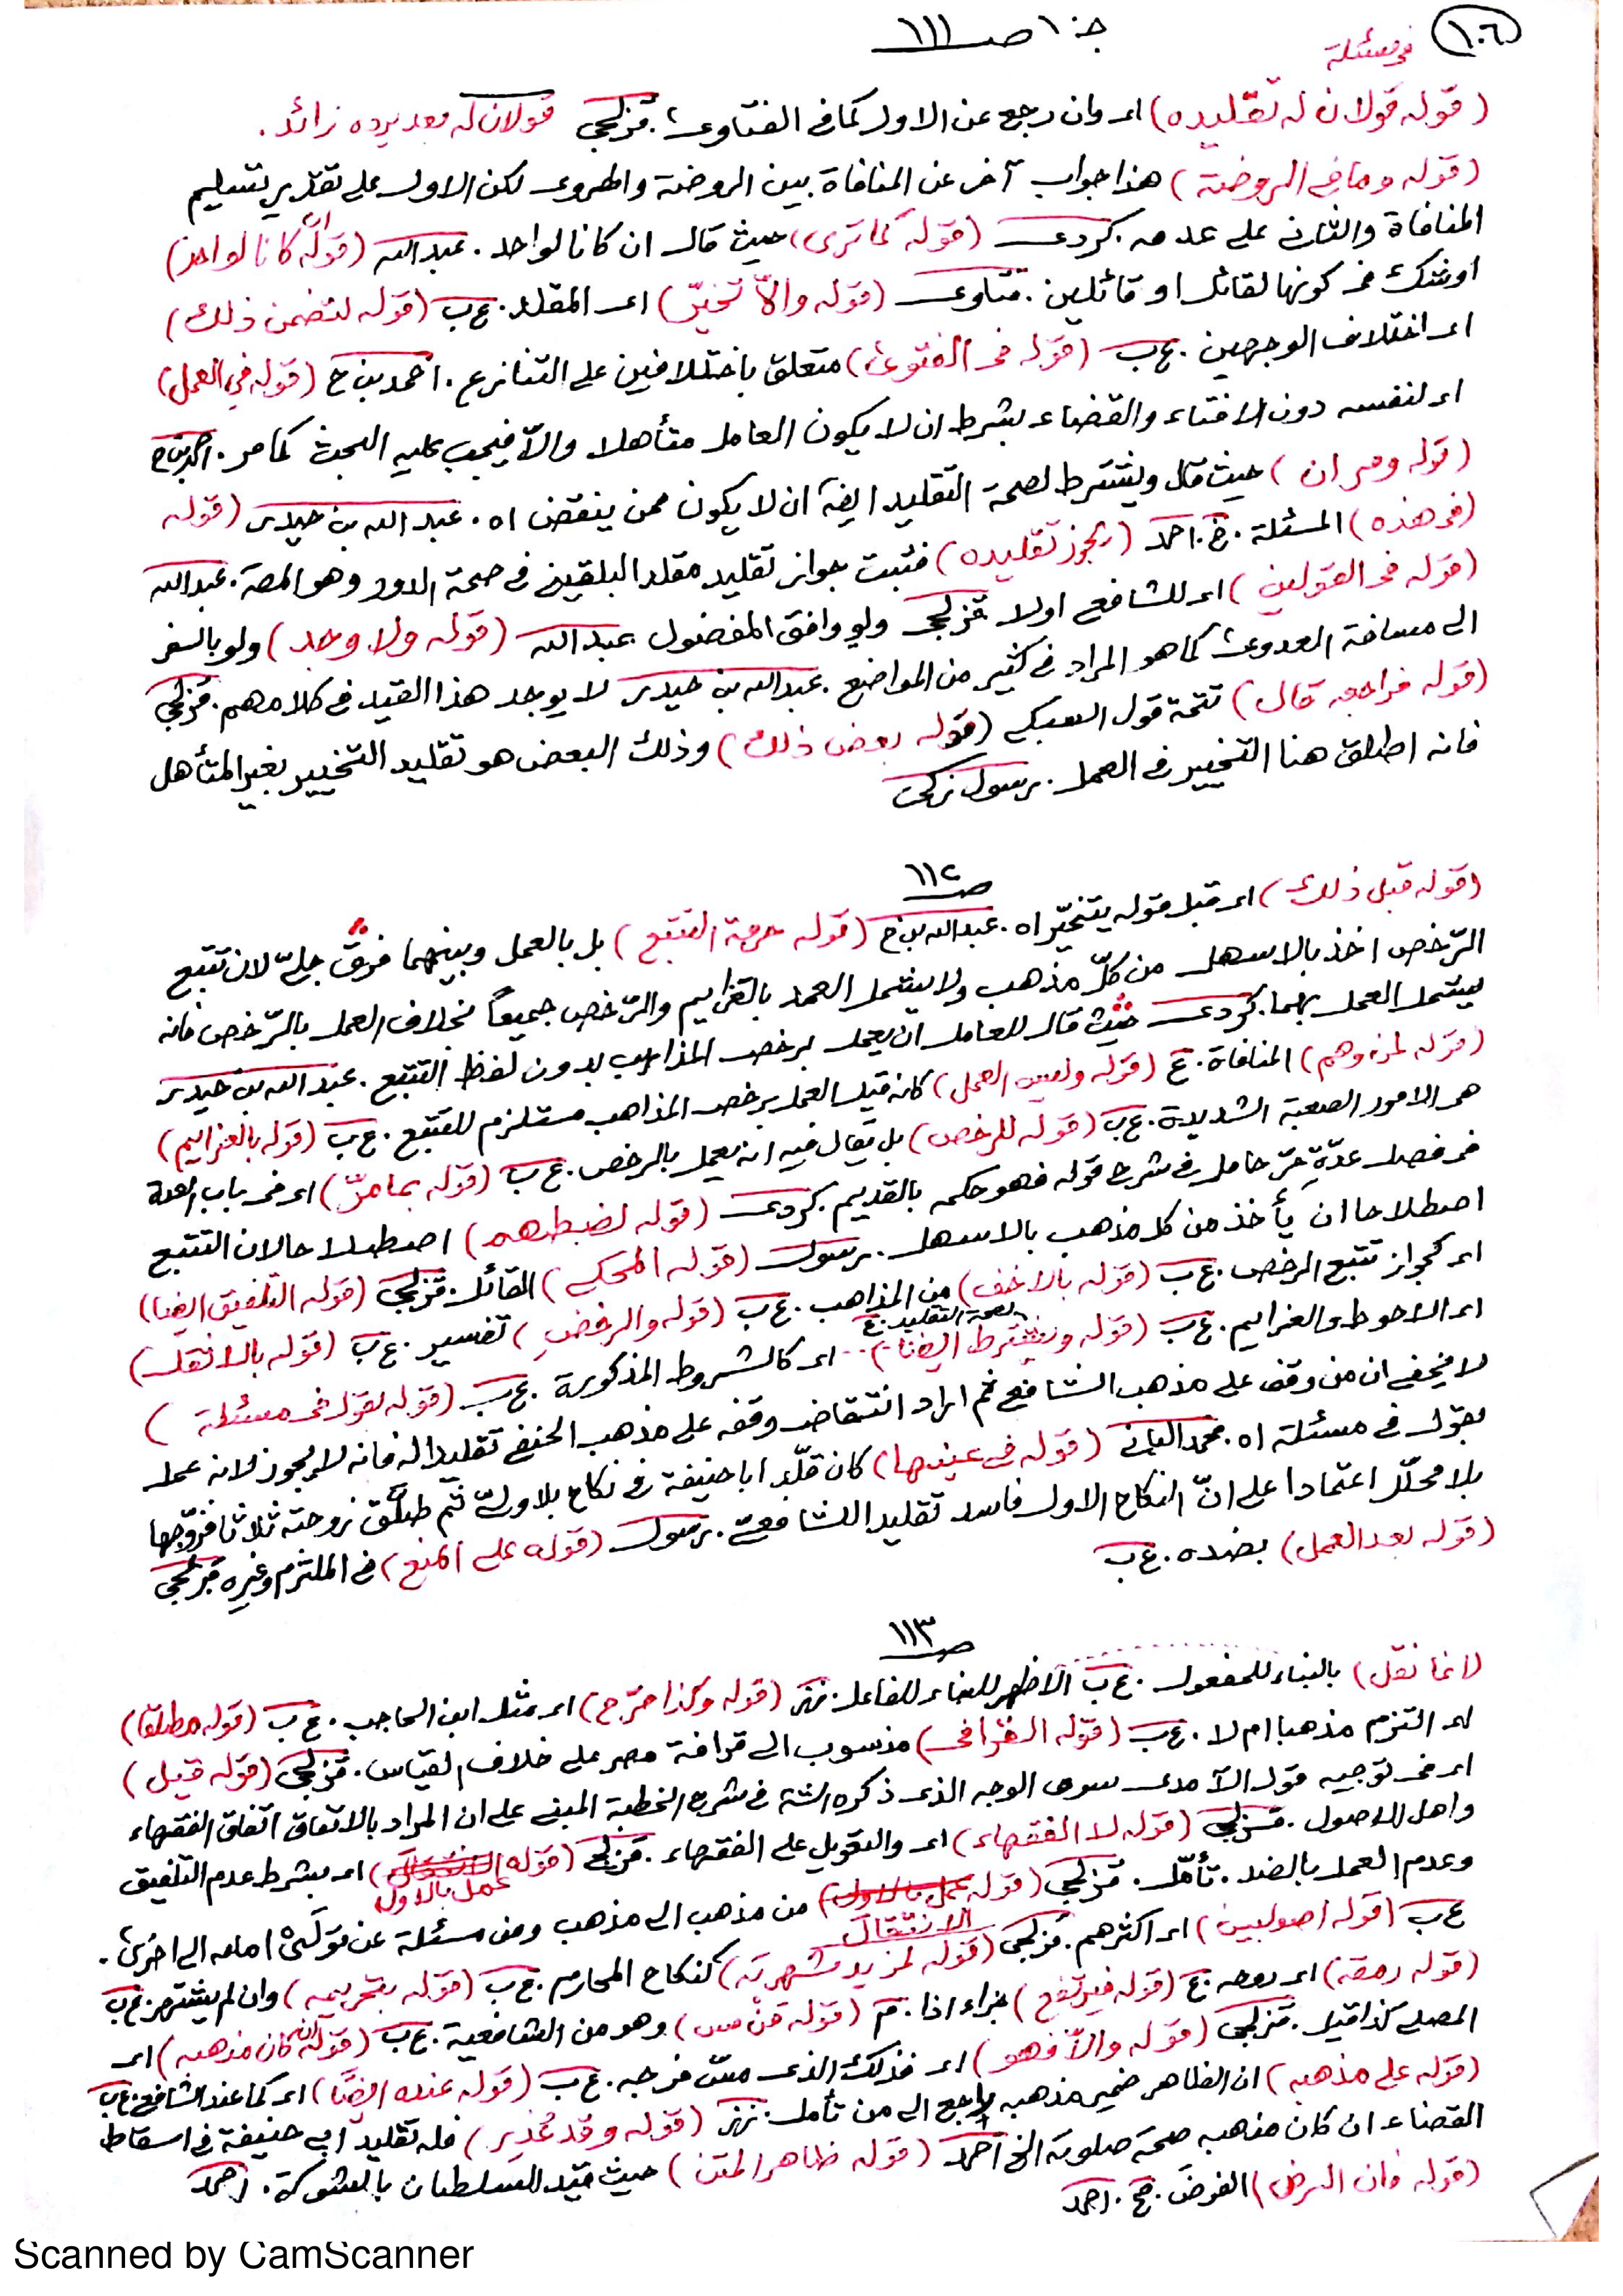 ١٠٦
جـ ١ صـ ١١١
في مسئلة
(قوله قولان له تقليده) اى وان رجع عن الاول كما فى الفتاوى. قزلجى قولان له بعد يرده زائد.
(قوله وما فى الروضة) هذا جواب آخر عن المنافاة بين الروضة والهروى لكن الاول على تقدير تسليم
المنافاة والثانى على عدمه. كردى (قوله كما ترى) حيث قال ان كانا لواحد. عبدالله (قوله ان كانا لواحد)
او شك فى كونها لقائل او قائلين. فتاوى (قوله والّا تخيّر) اى المقلد. ع ب (قوله لتضمن ذلك)
اى اختلاف الوجهين. ع ب (قوله فى الفتوى) متعلق باختلافين على التنازع. احمد بن ح (قوله فى العمل)
اى لنفسه دون الافتاء والقضاء بشرط ان لا يكون العامل متأهلا والّا فيجب عليه البحث كما مر. احمد بن ح
(قوله ومر ان) حيث قال ويشترط لصحة التقليد ايضا ان لا يكون ممن ينقض اه. عبد الله بن حيدر (قوله
فى هذه) المسئلة. خ. احمد (يجوز تقليده) فثبت جواز تقليد مقلد البلقينى فى صحة الدور وهو المص. عبدالله
(قوله فى القولين) اى للشافعى اولا قزلجى ولو وافق المفضول عبدالله (قوله ولا وجد) ولو بالسفر
الى مسافة العدوى كما هو المراد فى كثير من المواضع. عبدالله بن حيدر لا يوجد هذا القيد فى كلامهم. قزلجى
(قوله فراجعه قال) تتمة قول السبكى (قوله بعض ذلك) وذلك البعض هو تقليد التخيير بغير المتأهل
فانه اطلق هنا التخيير فى العمل. رسول زكى
صـ ١١٢
(قوله قبل ذلك) اى قبل قوله يتخيّر اه. عبدالله بن ح (قوله حرمة التتبع) بل بالعمل وبينهما فرق جلىّ لان تتبع
الرّخص اخذ بالاسهل من كلّ مذهب ولا يشمل العمل بالعزايم والرّخص جميعاً بخلاف العمل بالرّخص فانه
يشمل العمل بهما. كردى حيث قال للعامل ان يعمل برخص المذاهب بدون لفظ التتبع. عبد الله بن حيدر
(قوله لمن وهم) المنافاة. ع (قوله وليس العمل) كانه قيل العمل برخص المذاهب مستلزم للتتبع. ع ب (قوله بالعزايم)
هى الامور الصعبة الشديدة. ع ب (قوله للرخص) بل يقال فيه انه يعمل بالرخص. ع ب (قوله بما مرّ) اى فى باب العدة
فى فصل عدّة حرّ حامل فى شرح قوله فهو حكمه بالقديم. كردى (قوله لضبطهم) اصطلاحا لان التتبع
اصطلاحا ان يأخذ من كل مذهب بالاسهل. رسول (قوله المحكى) القائل. قزلجى (قوله التلفيق ايضا)
اى كجواز تتبع الرخص. ع ب (قوله بالاخف) من المذاهب. ع ب (قوله والرخص) تفسير. ع ب (قوله بالاثقل)
اى الاحوط والعزايم. ع ب (قوله ويشترط ايضا) لصحة التقليد. ع اى كالشروط المذكورة. ع ب (قوله بقول فى مسئلة)
لا يخفى ان من وقف على مذهب الشافعى ثم اراد انتقاض وقفه على مذهب الحنفى تقليدا له فانه لا يجوز لانه عمل
بقول فى مسئلة اه. محمد البانى (قوله فى عينها) كان قلّد ابا حنيفة فى نكاح بلا ولىّ ثم طلّق زوجته ثلاثا فزوّجها
بلا محلّل اعتمادا على انّ النكاح الاول فاسد تقليدا للشافعىّ. رسول (قوله على المنع) فى الملتزم وغيره قزلجى
(قوله بعد العمل) بضده. ع ب
صـ ١١٣
(انما نقل) بالبناء للمفعول. ع ب الاظهر للبناء للفاعل. نز (قوله وكذا صرّح) اى مثل ابن الحاجب. ع ب (قوله مطلقا)
اى التزم مذهبا ام لا. ع ب (قوله القرافى) منسوب الى قرافة مصر على خلاف القياس. قزلجى (قوله قيل)
اى فى توجيه قول الآمدى سوى الوجه الذى ذكره الش فى شرح الخطبة المبنى على ان المراد بالاتفاق اتفاق الفقهاء
واهل الاصول. قزلجى (قوله لا الفقهاء) اى والتعويل على الفقهاء. قزلجى (قوله عمل بالاول) اى بشرط عدم التلفيق
وعدم العمل بالضد. تأمّل. قزلجى (قوله الانتقال) من مذهب الى مذهب ومن مسئلة عن قولَىْ امامه الى اخرى.
ع ب (قوله اصوليين) اى اكثرهم. قزلجى (قوله لمزيد شهرته) كنكاح المحارم. ع ب (قوله بتحريمه) وان لم يشتهر. ع ب
(قوله ربقة) اى بعصه. ع (قوله فيرتفع) جزاء اذا. م (قوله فمن مس) وهو من الشافعية. ع ب (قوله ان كان مذهبه) اى
المصلى كذا قيل. قزلجى (قوله والّا فهو) اى فذلك الذى مسّ فرجه. ع ب (قوله عنده ايضًا) اى كما عند الشافعى. ع ب
(قوله على مذهبه) ان الظاهر ضمير مذهبه راجع الى من تأمل. نز (قوله وقد عُذِر) فله تقليد ابى حنيفة فى اسقاط
القضاء ان كان مذهبه صحة صلوته الخ احمد (قوله ظاهر المتن) حيث قيّد السلطان بالشوكة. احمد
(قوله فان الرض) الفرض. صح. احمد
Scanned by CamScanner